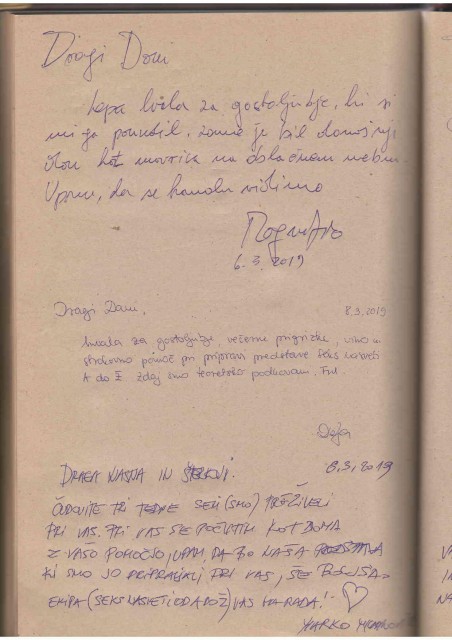 Dragi Dani
Lepa hvala za gostoljubje, ki si
mi ga ponudil, zame je bil današnji
dan kot mavrica na oblačnem nebu.
Upam, da se kmalu vidimo
6.3.2019
Dragi Dani,
8.3.2019
hvala za gostoljubje, večerne prigrizke, vino in
strokovno pomoč pri pripravi predstave Seks nasveti
A do Ž zdaj smo teoretsko podkovani,
8.3.2019
DRAGA NASTJA IN
ČUDOVITE TRI TEDNE SEM (SMO) PREŽIVELI
PRI VAS. PRI VAS SE POČUTIM KOT DOMA
Z VAŠO POMOČJO, UPAM, DA BO NAŠA PREDSTAVA
KI SMO JO PRIPRAVLJALI PRI VAS, ŠE BOLJŠA.
EKIPA (SEKS NASVETI OD A DO Ž) VAS IMA RADA!
MARKO